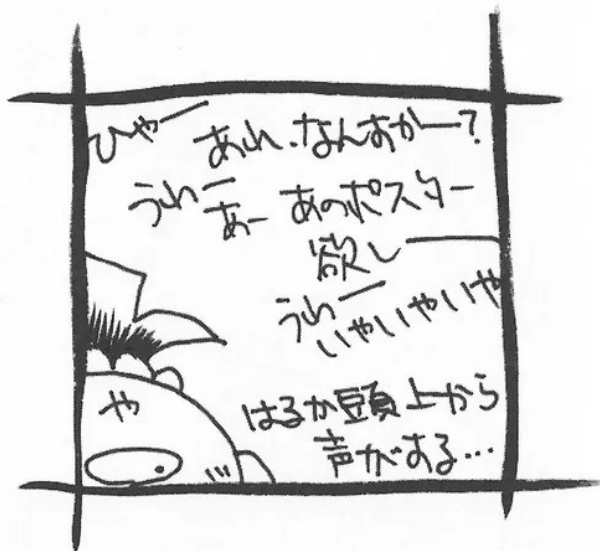 ひゃー
あれ、なんすかー?
うわー
あー あのポスター
欲しー
うわー
いやいやいや
はるか頭上から
声がする…
や